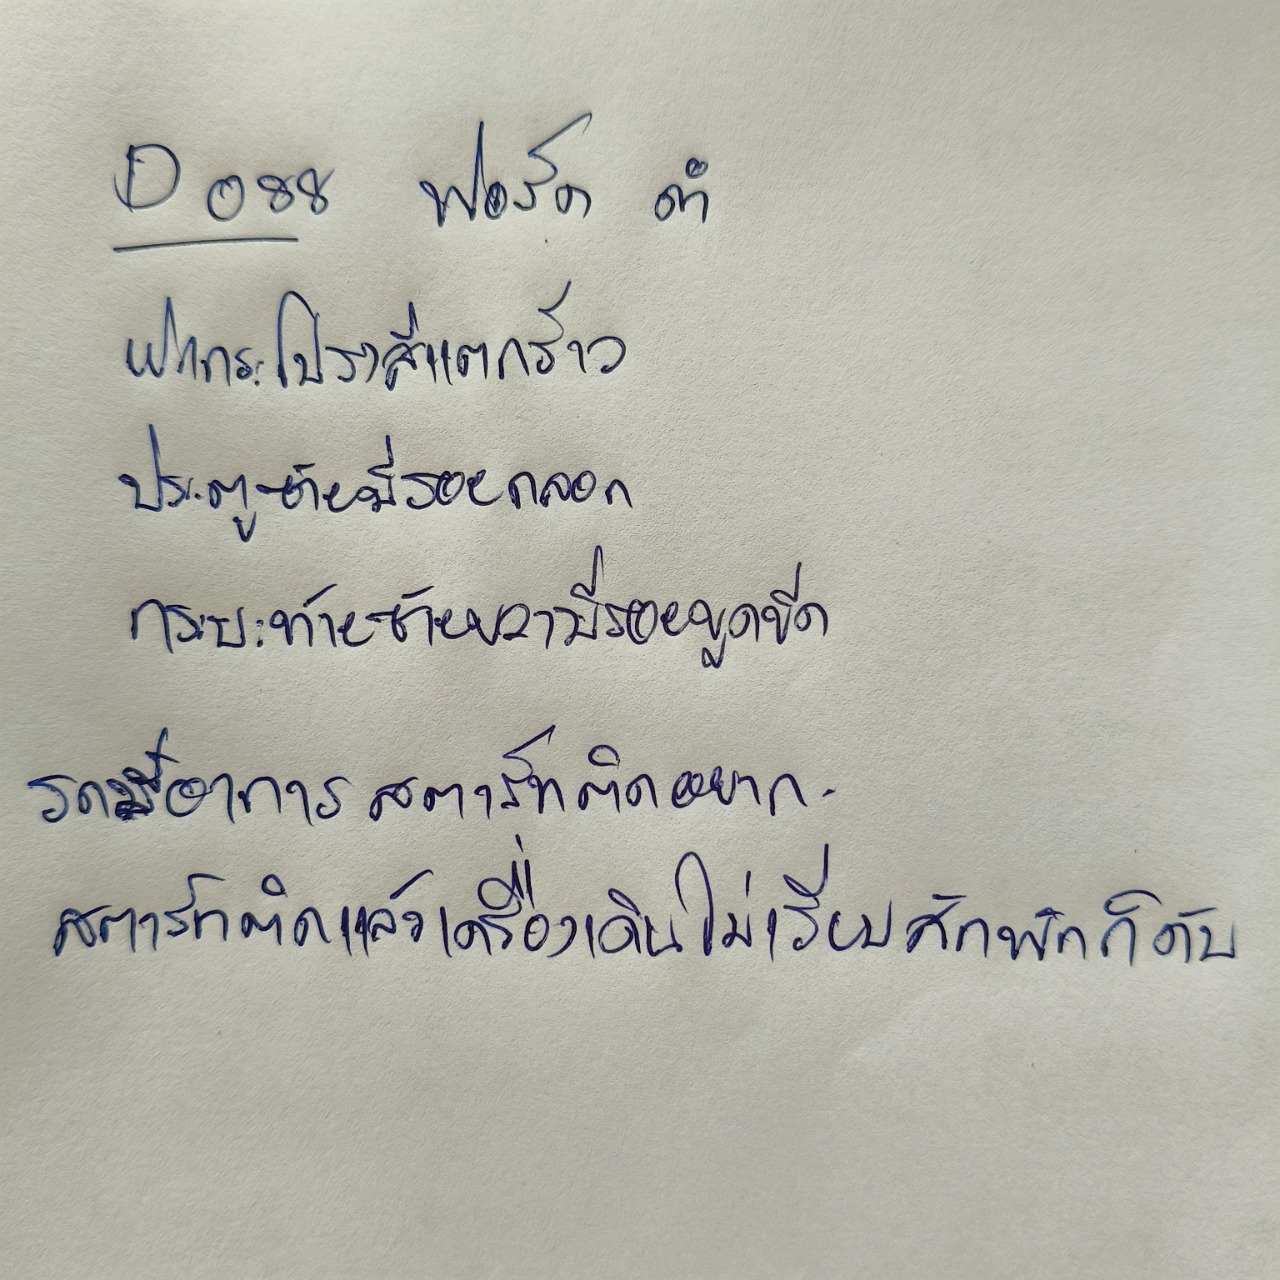 D 088 ฟอร์ด ดำ
ฝากระโปรงสีแตกร้าว
ประตูซ้ายมีรอยถลอก
กระบะท้ายซ้ายขวามีรอยขูดขีด
รถมีอาการ สตาร์ทติดยาก.
สตาร์ทติดแล้วเครื่องเดินไม่เรียบ สักพักก็ดับ